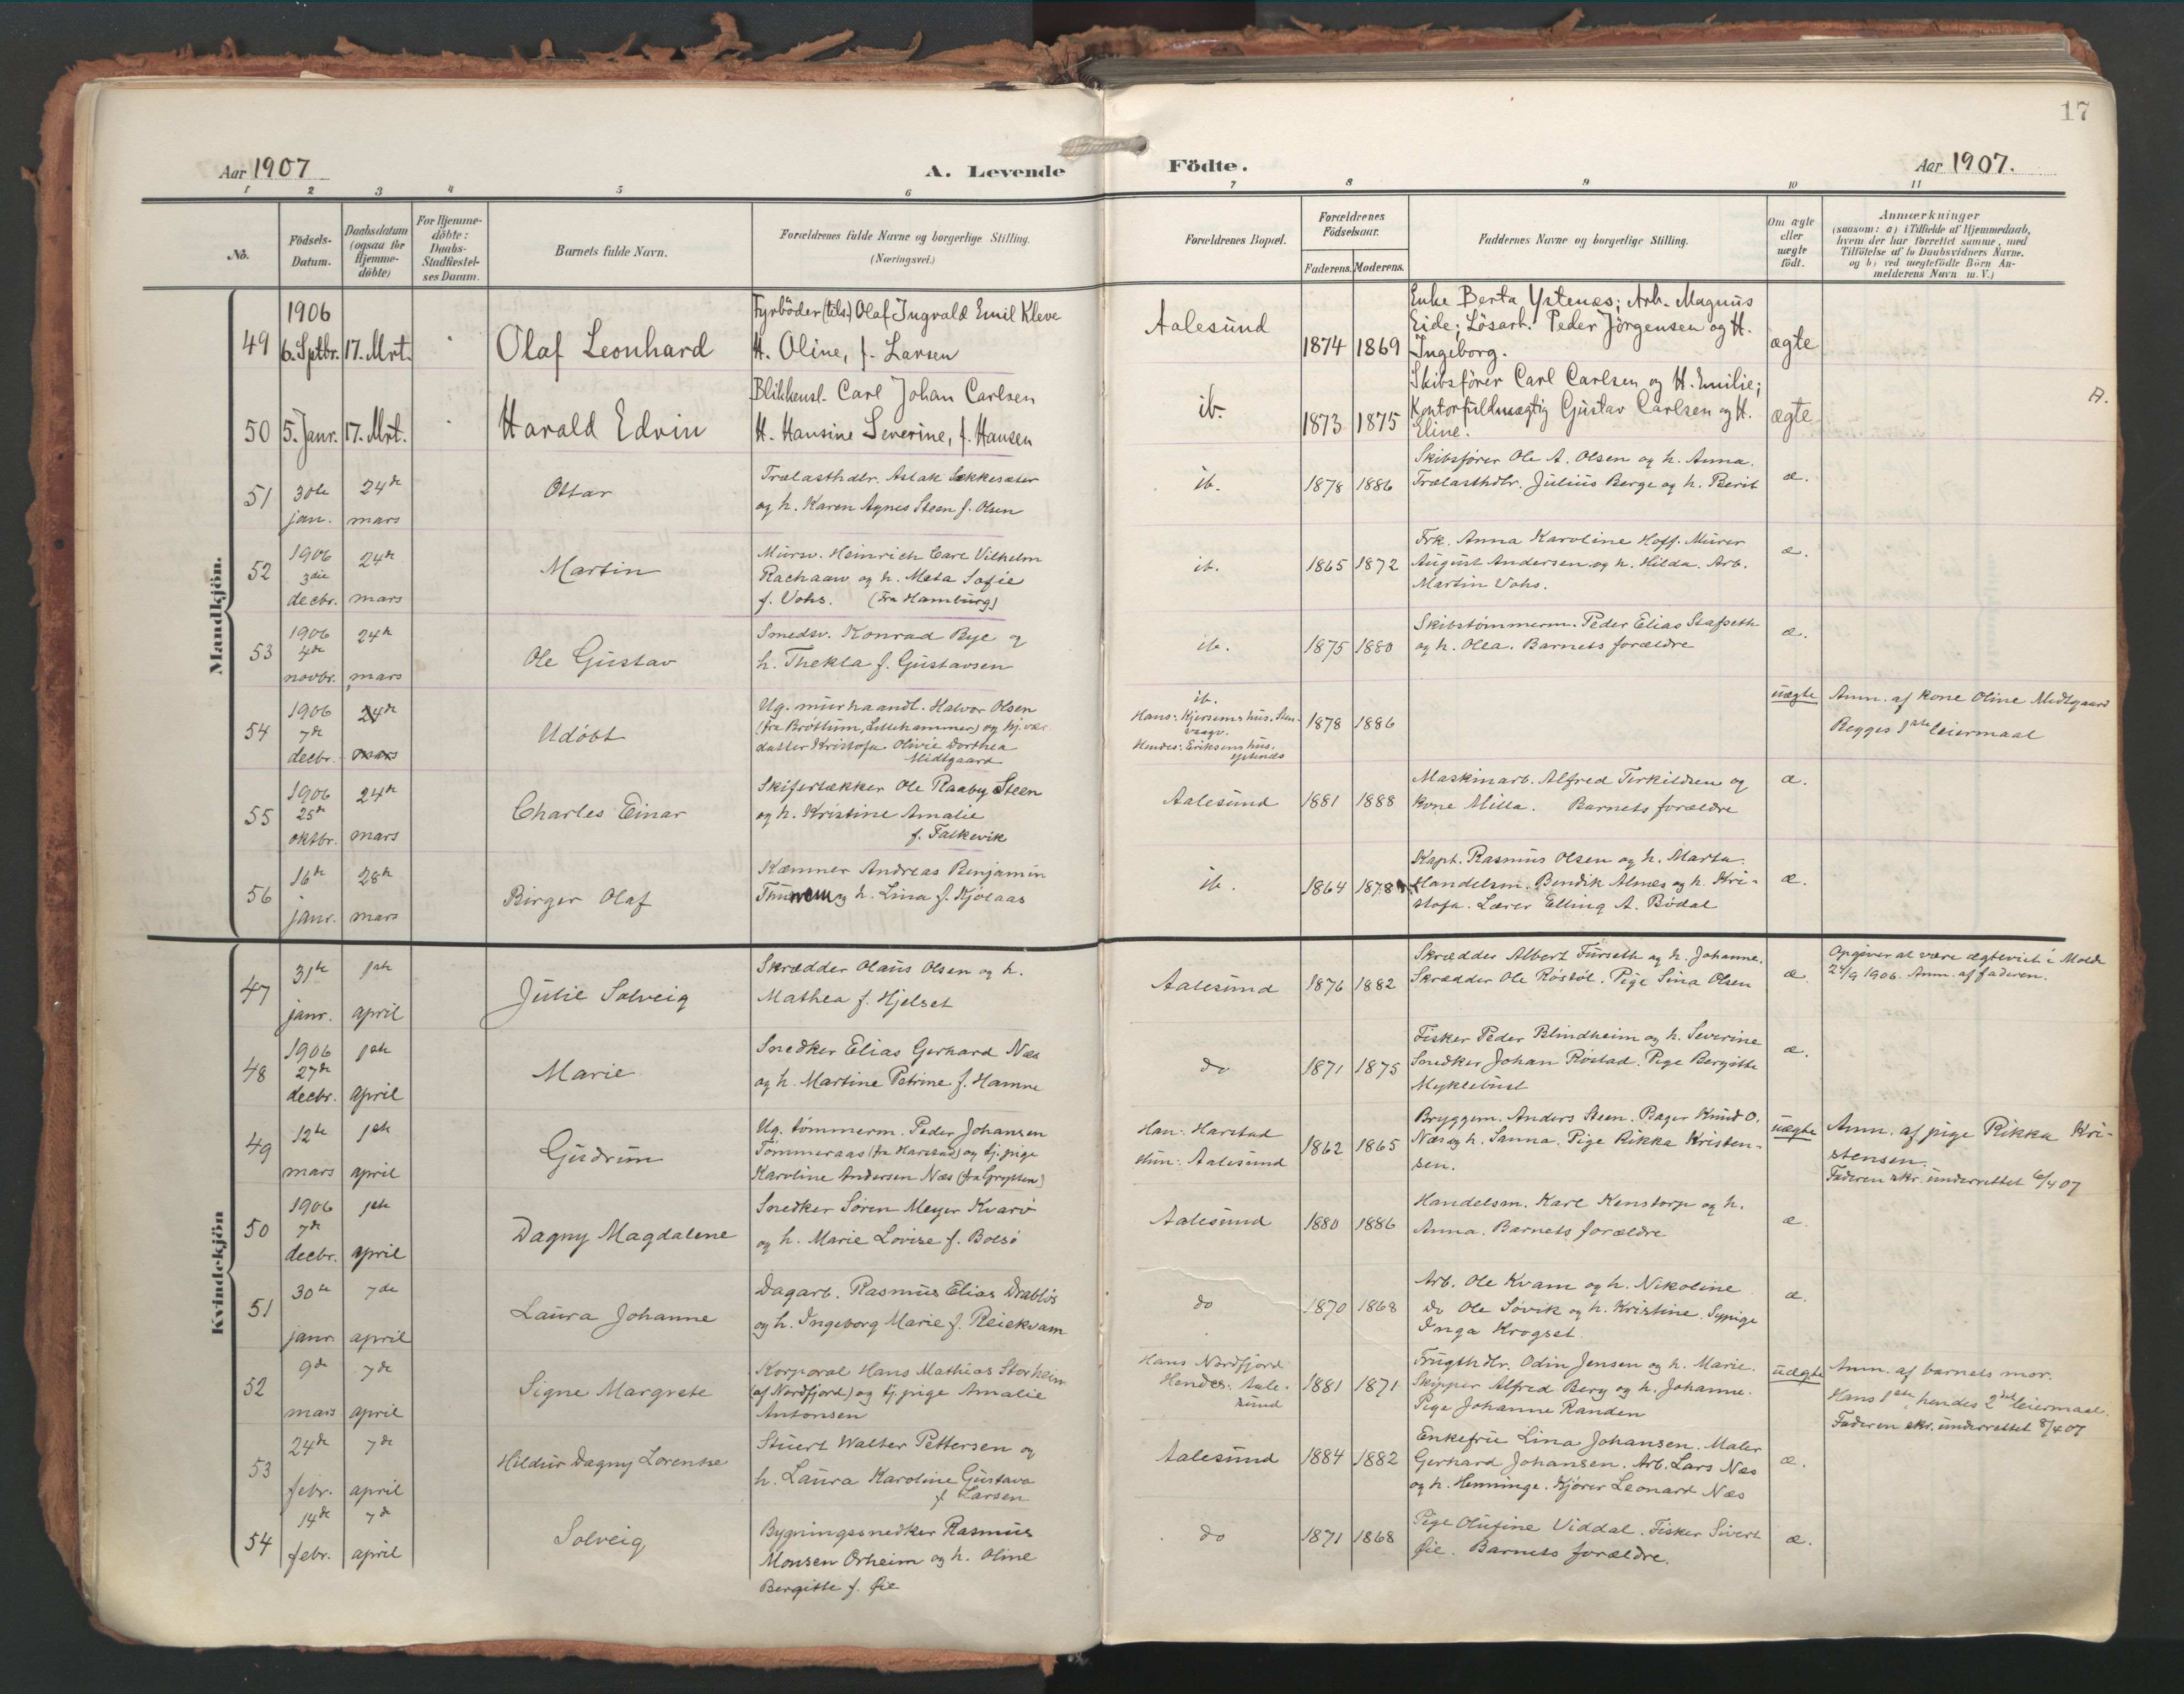 17
Aar 1907
A. Levende
Födte.
Aar 1907.
1 2 3 4 5 6 7 8 9 10 11
No.
Födsels-
Datum.
Daabsdatum
(ogsaa for
Hjemme-
döbte)
For Hjemme-
döbte:
Daabs-
Stadfæstel-
ses Datum.
Barnets fulde Navn.
Forældrenes fulde Navne og borgerlige Stilling.
(Næringsvei.)
Forældrenes Bopæl.
Forældrenes
Födselsaar.
Faderens. Moderens.
Faddernes Navne og borgerlige Stilling.
Om ægte
eller
uægte
födt.
Anmærkninger
(saasom: a) i Tilfælde af Hjemmedaab,
hvem der har forrettet samme, med
Tilföielse af to Daabsvidners Navne.
og b) ved uægtefödte Börn An-
melderens Navn m. V.)
Mandkjön.
49
1906
6. Sptbr.
17. Mrt.
Olaf Leonhard
Fyrböder (tils.) Olaf Ingvald Emil Kleve
H. Oline, f. Larsen
Aalesund
1874 1869
Enke Berta Ystenæs; Arb. Magnus
Eide; Lösarb. Peder Jörgensen og H.
Ingeborg.
ægte
50
5. Janr.
17. Mrt.
Harald Edvin
Blikkensl. Carl Johan Carlsen
H. Hansine Severine, f. Hansen
ib.
1873 1875
Skibsförer Carl Carlsen og H. Emilie;
Kontorfuldmægtig Gustav Carlsen og H.
Eline.
ægte
A.
51
30te
jan.
24de
mars
Ottar
Trælasthdlr. Aslak Sekkesæter
og h. Karen Agnes Steen f. Olsen
ib.
1878 1886
Skibsfører Ole A. Olsen og h. Anna.
Trælasthdlr. Julius Berge og h. Berit
æ.
52
1906
3die
decbr.
24de
mars
Martin
Mursv. Heinrich Carl Vilhelm
Rachaaw og h. Meta Sofie
f. Vohs. (Fra Hamburg)
ib.
1865 1872
Frk. Anna Karoline Hoff. Murer
August Andersen og h. Hilda. Arb.
Martin Vohs.
æ.
53
1906
4de
novbr.
24de
mars
Ole Gustav
Smedsv. Konrad Bye og
h. Thekla f. Gustavsen
ib.
1875 1880
Skibstømmerm. Peder Elias Stafseth
og h. Olea. Barnets forældre
æ.
54
1906
7de
decbr.
24de
mars
Udøbt
Ug. murhaandl. Halvor Olsen
(fra Brøttum, Lillehammer) og
datter Kristofa Olivie Dorthea
Midtgaard
ib.
Hans: Kjersems hus. Sten-
vaagv.
Hendes: Eriksens hus.
ystenæs
1878 1886
uægte
Anm. af kone Oline Midtgaard
Begges 1ste leiermaal
55
1906
25de
oktbr.
24de
mars
Charles Einar
Skifertækker Ole Raaby Steen
og h. Kristine Amalie
f. Falkevik
Aalesund
1881 1888
Maskinarb. Alfred Terkildsen og
kone Milla. Barnets forældre
æ.
56
16de
janr.
28de
mars
Birger Olaf
Kæmner Andreas Benjamin
og h. Lina f. Kjølaas
ib.
1864 1878
Kapt. Rasmus Olsen og h. Marta.
Handelsm. Bendik Alnæs og h. Kri-
stofa. Lærer Elling A. Bødal
æ.
Kvindekjön
47
31te
janr.
1ste
april
Julie Solveig
Skrædder Olaus Olsen og h.
Mathea f. Hjelset
Aalesund
1876 1882
Skrædder Albert Furseth og h. Johanne.
Skrædder Ole Røstøl. Pige Sina Olsen
æ.
Opgiver at være ægteviet i Molde
24/9 1906. Anm. af faderen.
48
1906
27de
decbr.
1ste
april
Marie
Snedker Elias Gerhard Næs
og h. Martine Petrine f. Hamne
do
1871 1875
Fisker Peder Blindheim og h. Severine
Snedker Johan Røstad. Pige Bergitte
Myklebust
æ.
49
12te
mars
1ste
april
Gudrun
Ug. tømmerm. Peder Johansen
Tømmeraas (fra Harstad) og tj. pige
Karoline Andersen Næs (fra Grytten)
Han: Harstad
Hun: Aalesund
1862 1865
Bryggem. Anders Steen. Bager Knud O.
Næs og h. Sanna. Pige Rikka Kristen-
sen.
uægte
Anm. af pige Rikka Kri-
stensen.
Faderen skr. underrettet 6/4 07
50
1906
7de
decbr.
1ste
april
Dagny Magdalene
Snedker Søren Meyer Kvarø
og h. Marie Lovise f. Bolsø
Aalesund
1880 1886
Handelsm. Karl Kenstorp og h.
Anna. Barnets forældre
æ.
51
30te
janr
7de
april
Laura Johanne
Dagarb. Rasmus Elias Drabløs
og h. Ingeborg Marie f. Reiekvam
do
1870 1868
Arb. Ole Kvam og h. Nikoline
Do Ole Søvik og h. Kristine. Sypige
Inga Krogset.
æ.
52
9de
mars
7de
april
Signe Margrete
Korporal Hans Mathias Storheim
(af Nordfjord) og tj. pige Amalie
Antonsen
Hans Nordfjord
Hendes: Aale-
sund
1881 1871
Frugthdlr. Odin Jensen og h. Marie.
Skipper Alfred Berg og h. Johanne.
Pige Johanne Randen
uægte
Anm. af barnets mor.
Hans 1ste, hendes 2det leiermaal.
Faderen skr. underrettet 8/4 07
53
24de
febr.
7de
april
Hildur Dagny Lorentse
Stuert Walter Pettersen og
h. Laura Karoline Gustava
f. Larsen
Aalesund
1884 1882
Enkefru Lina Johansen. Maler
Gerhard Johansen. Arb. Lars Næs
og h. Henninge. Kjører Leonard Næs
æ.
54
14de
febr.
7de
april
Solveig
Bygningssnedker Rasmus
Monsen Ørheim og h. Oline
Bergitte f. Øie
do
1871 1868
Pige Olufine Viddal. Fisker Sivert
Øie. Barnets forældre.
æ.